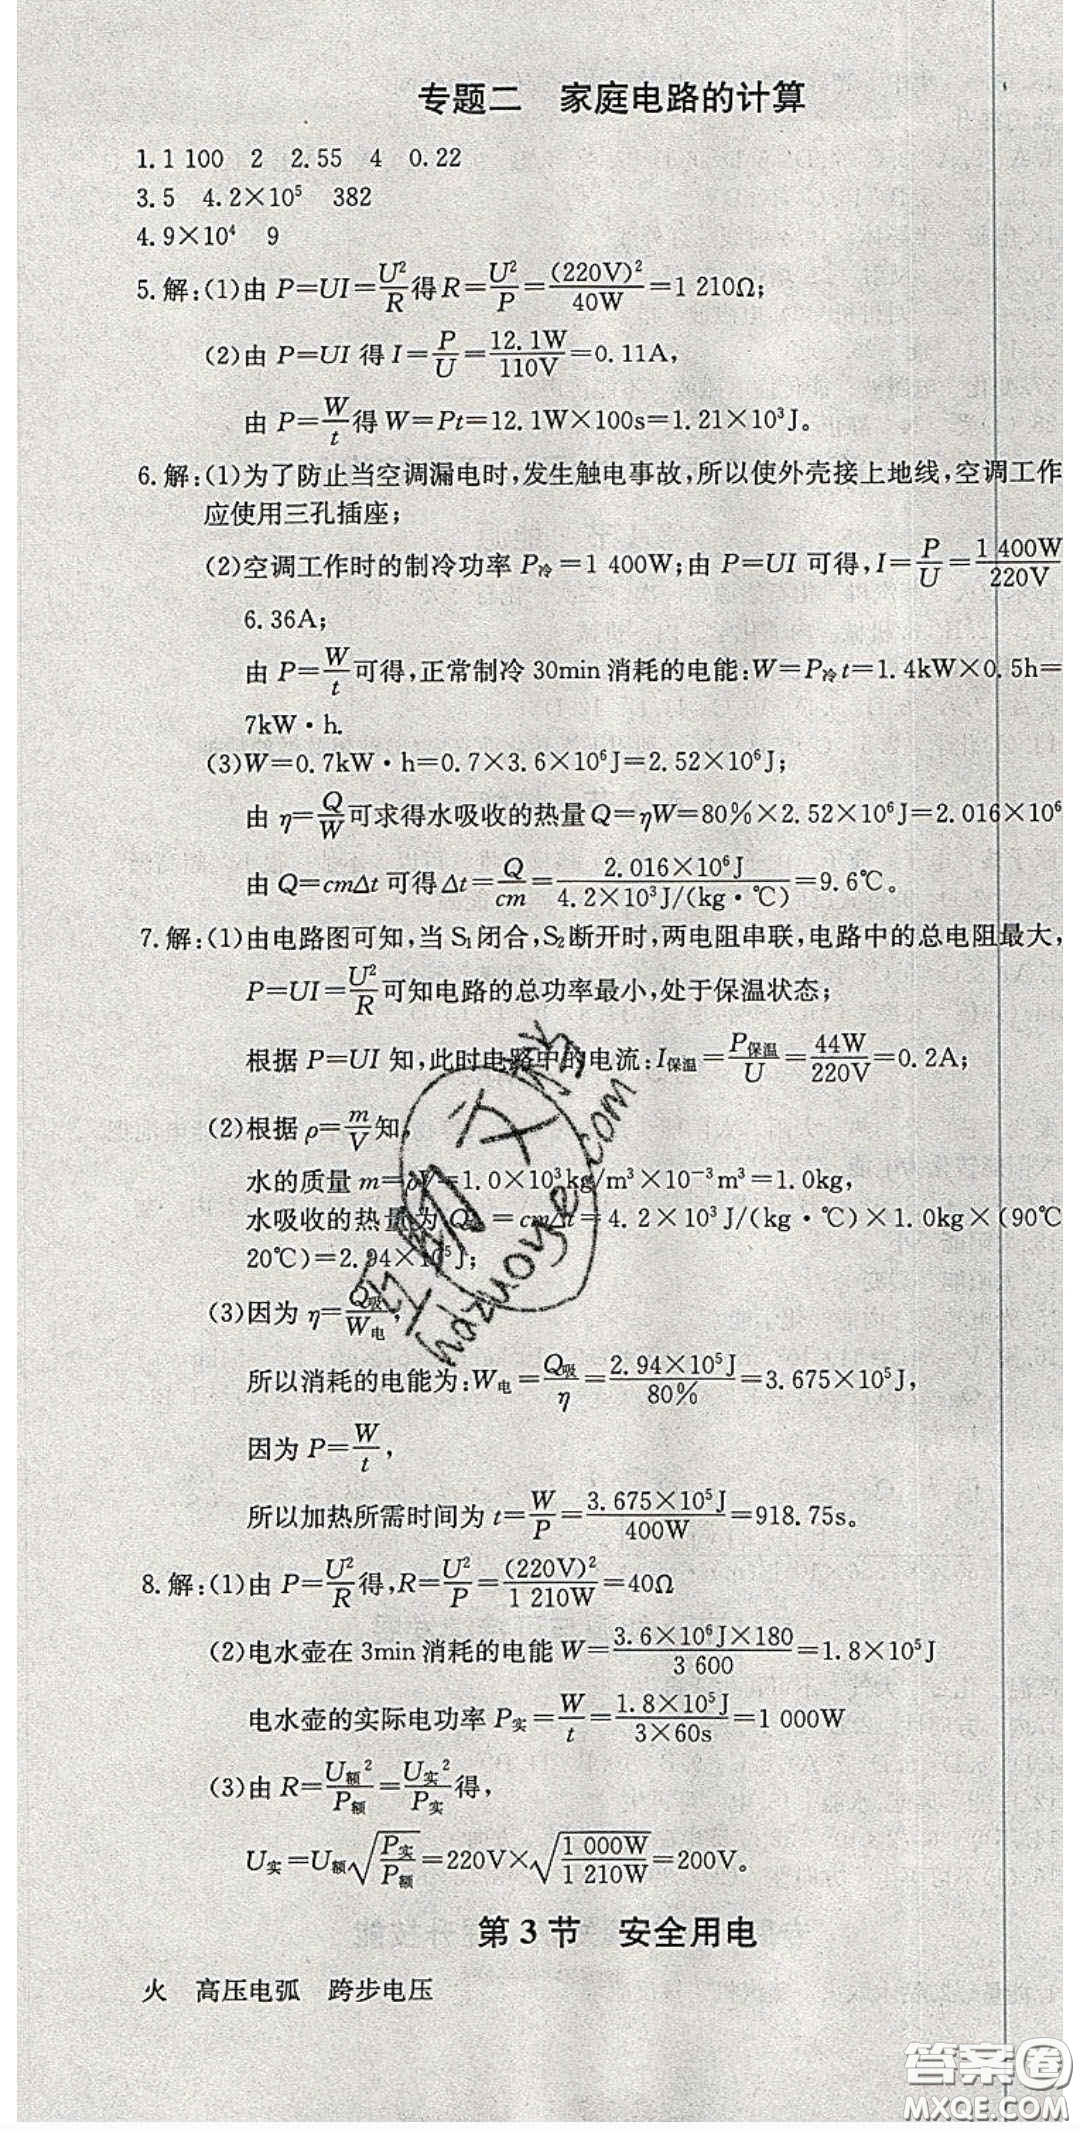 专题二 家庭电路的计算
1.1 100 2 2.55 4 0.22
3.5 4.2×10⁵ 382
4.9×10⁴ 9
5.解:(1)由 P=UI=U²/R得R=U²/P=(220V)²/40W=1 210Ω;
(2)由 P=UI 得 I=P/U=12.1W/110V=0.11A,
由 P=W/t得 W=Pt=12.1W×100s=1.21×10³J。
6.解:(1)为了防止当空调漏电时,发生触电事故,所以使外壳接上地线,空调工作
应使用三孔插座;
(2)空调工作时的制冷功率 P冷=1 400W;由 P=UI 可得,I=P/U=1 400W/220V
6.36A;
由 P=W/t可得,正常制冷 30min 消耗的电能:W=P冷t=1.4kW×0.5h=
7kW·h.
(3)W=0.7kW·h=0.7×3.6×10⁶J=2.52×10⁶J;
由 η=Q/W可求得水吸收的热量Q=ηW=80%×2.52×10⁶J=2.016×10⁶
由 Q=cmΔt 可得 Δt=Q/cm=2.016×10⁶J/4.2×10³J/(kg·℃)=9.6℃。
7.解:(1)由电路图可知,当 S₁闭合,S₂断开时,两电阻串联,电路中的总电阻最大,
P=UI=U²/R可知电路的总功率最小,处于保温状态;
根据 P=UI 知,此时电路中的电流:I保温=P保温/U=44W/220V=0.2A;
(2)根据 ρ=m/V知,
水的质量 m=ρV=1.0×10³kg/m³×10⁻³m³=1.0kg,
水吸收的热量为 Q吸=cmΔt=4.2×10³J/(kg·℃)×1.0kg×(90℃
20℃)=2.94×10⁵J;
(3)因为 η=Q吸/W电,
所以消耗的电能为:W电=Q吸/η=2.94×10⁵J/80%=3.675×10⁵J,
因为 P=W/t,
所以加热所需时间为 t=W/P=3.675×10⁵J/400W=918.75s。
8.解:(1)由 P=U²/R得,R=U²/P=(220V)²/1 210W=40Ω
(2)电水壶在 3min 消耗的电能 W=3.6×10⁶J×180/3 600=1.8×10⁵J
电水壶的实际电功率 P实=W/t=1.8×10⁵J/3×60s=1 000W
(3)由 R=U额²/P额=U实²/P实得,
U实=U额√(P实/P额)=220V×√(1 000W/1 210W)=200V。
第 3 节 安全用电
火 高压电弧 跨步电压
答案圈
MXQE.COM